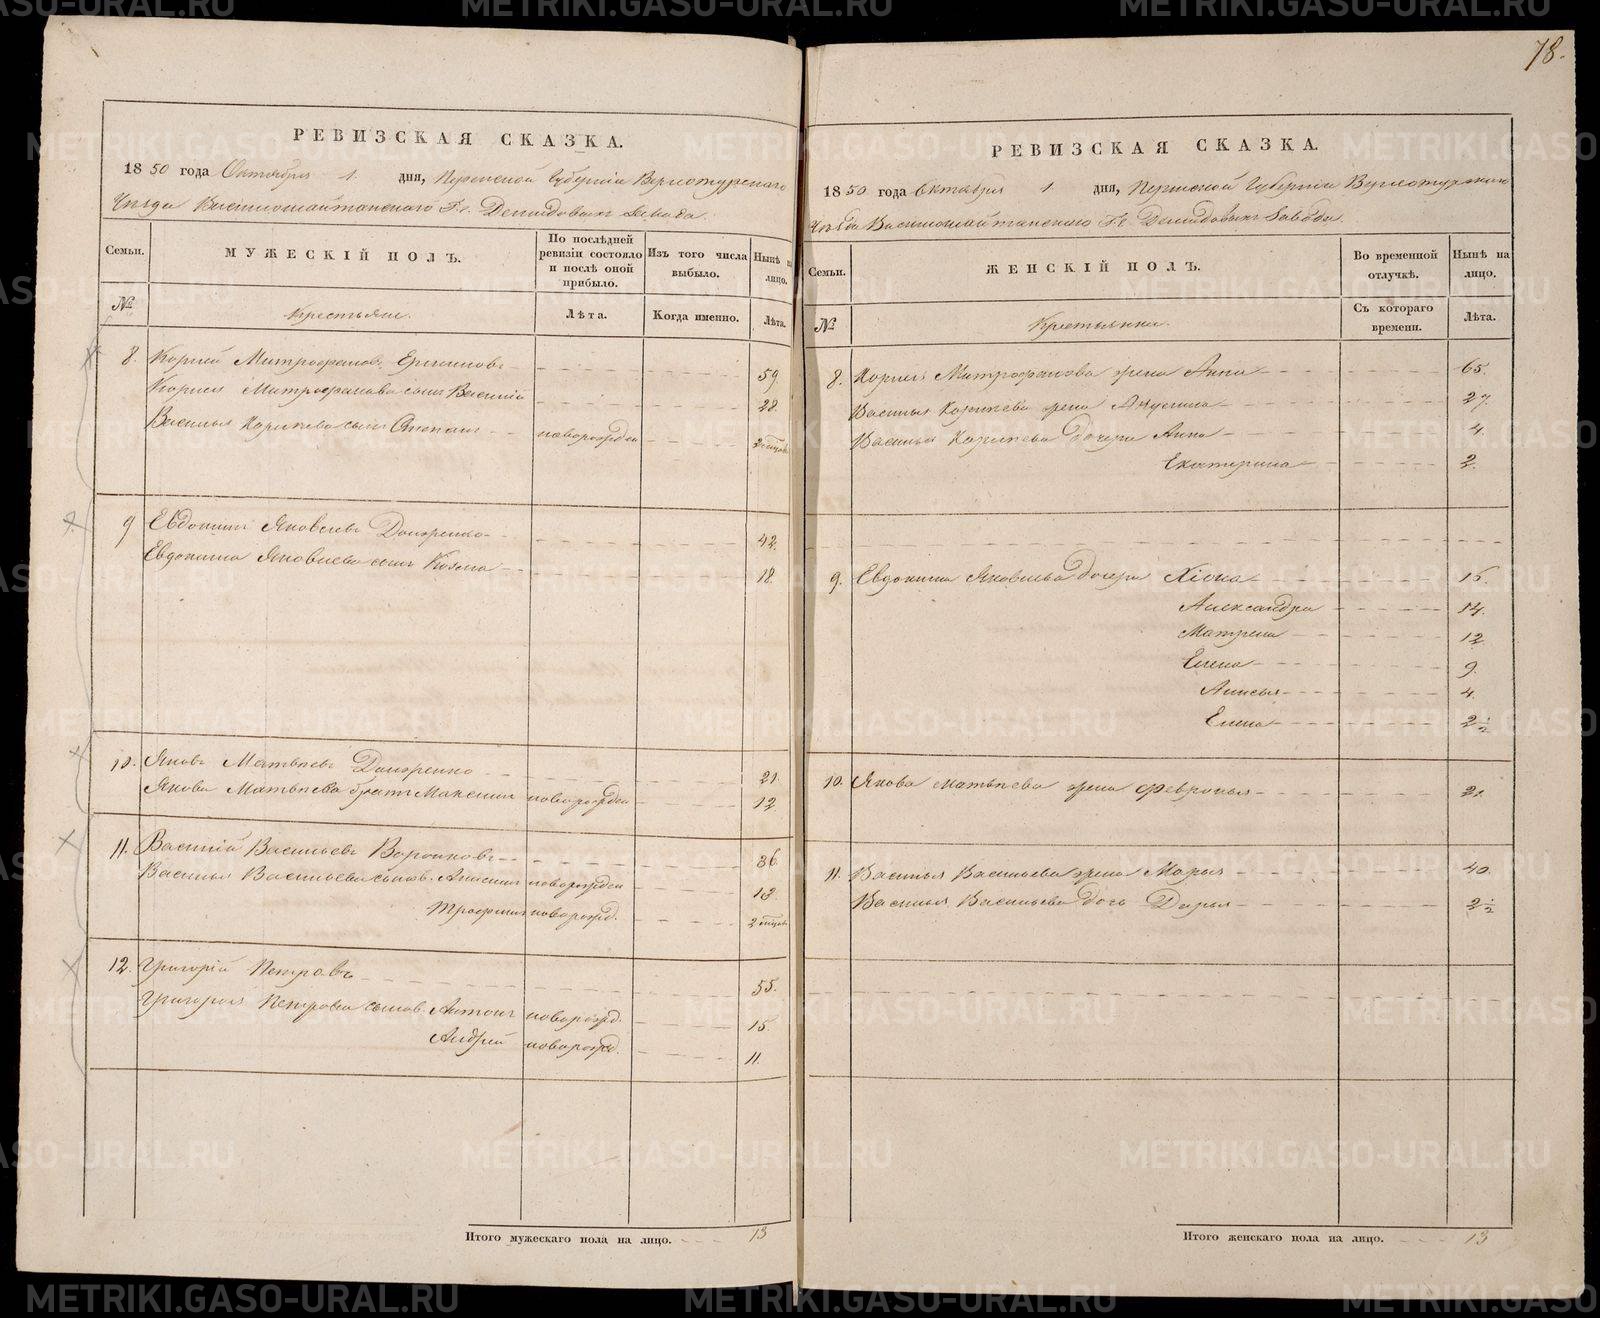 78.
РЕВИЗСКАЯ СКАЗКА.
1850 года Октября 1. дня, Пермской Губернии Верхотурского
Уезда Висимошайтанского Гг. Демидовых Завода.
Семьи. МУЖЕСКІЙ ПОЛЪ. По послѣдней ревизіи состояло и послѣ оной прибыло. Изъ того числа выбыло. Нынѣ на лицо.
№ Крестьяне. Лѣта. Когда именно. Лѣта.
8. Корнил Митрофанов 59.
Корнила Митрофанова сын Василій 28.
Василья Корнилова сын Степан новорожден 2 месяцов
9 Евдоким Яковлев Долженко 42.
Евдокима Яковлева сын Козма 18.
10. Яков Матвеев Долженко 21.
Якова Матвеева брат Максим новорожден 12.
11. Василій Васильев Воронков 36.
Василья Васильева сынов. новорожден 13.
Трофим новорожд. 2 месяцов
12. Григорій Петров 55.
Григорья Петрова сынов. Антон новорожд. 15.
Андрей новорожд. 11.
Итого мужескаго пола на лицо. 13
РЕВИЗСКАЯ СКАЗКА.
1850 года Октября 1. дня, Пермской Губернии Верхотурского
Уезда Висимошайтанского Гг. Демидовых Завода.
Семьи. ЖЕНСКІЙ ПОЛЪ. Во временной отлучкѣ. Нынѣ на лицо.
№ Крестьянки. Съ котораго времени. Лѣта.
8. Корнила Митрофанова жена Анна 65.
Василья Корнилова жена 27.
Василья Корнилова дочери Анна 4.
Екатерина 2.
9. Евдокима Яковлева дочери Хіона 16.
Александра 14.
Матрена 12
Елена 9.
Анисья 4.
Елена 2½
10. Якова Матвеева жена Февронья 21.
11. Василья Васильева жена Марья 40.
Василья Васильева дочь Дарья 2½
Итого женскаго пола на лицо. 13
METRIKI.GASO-URAL.RU